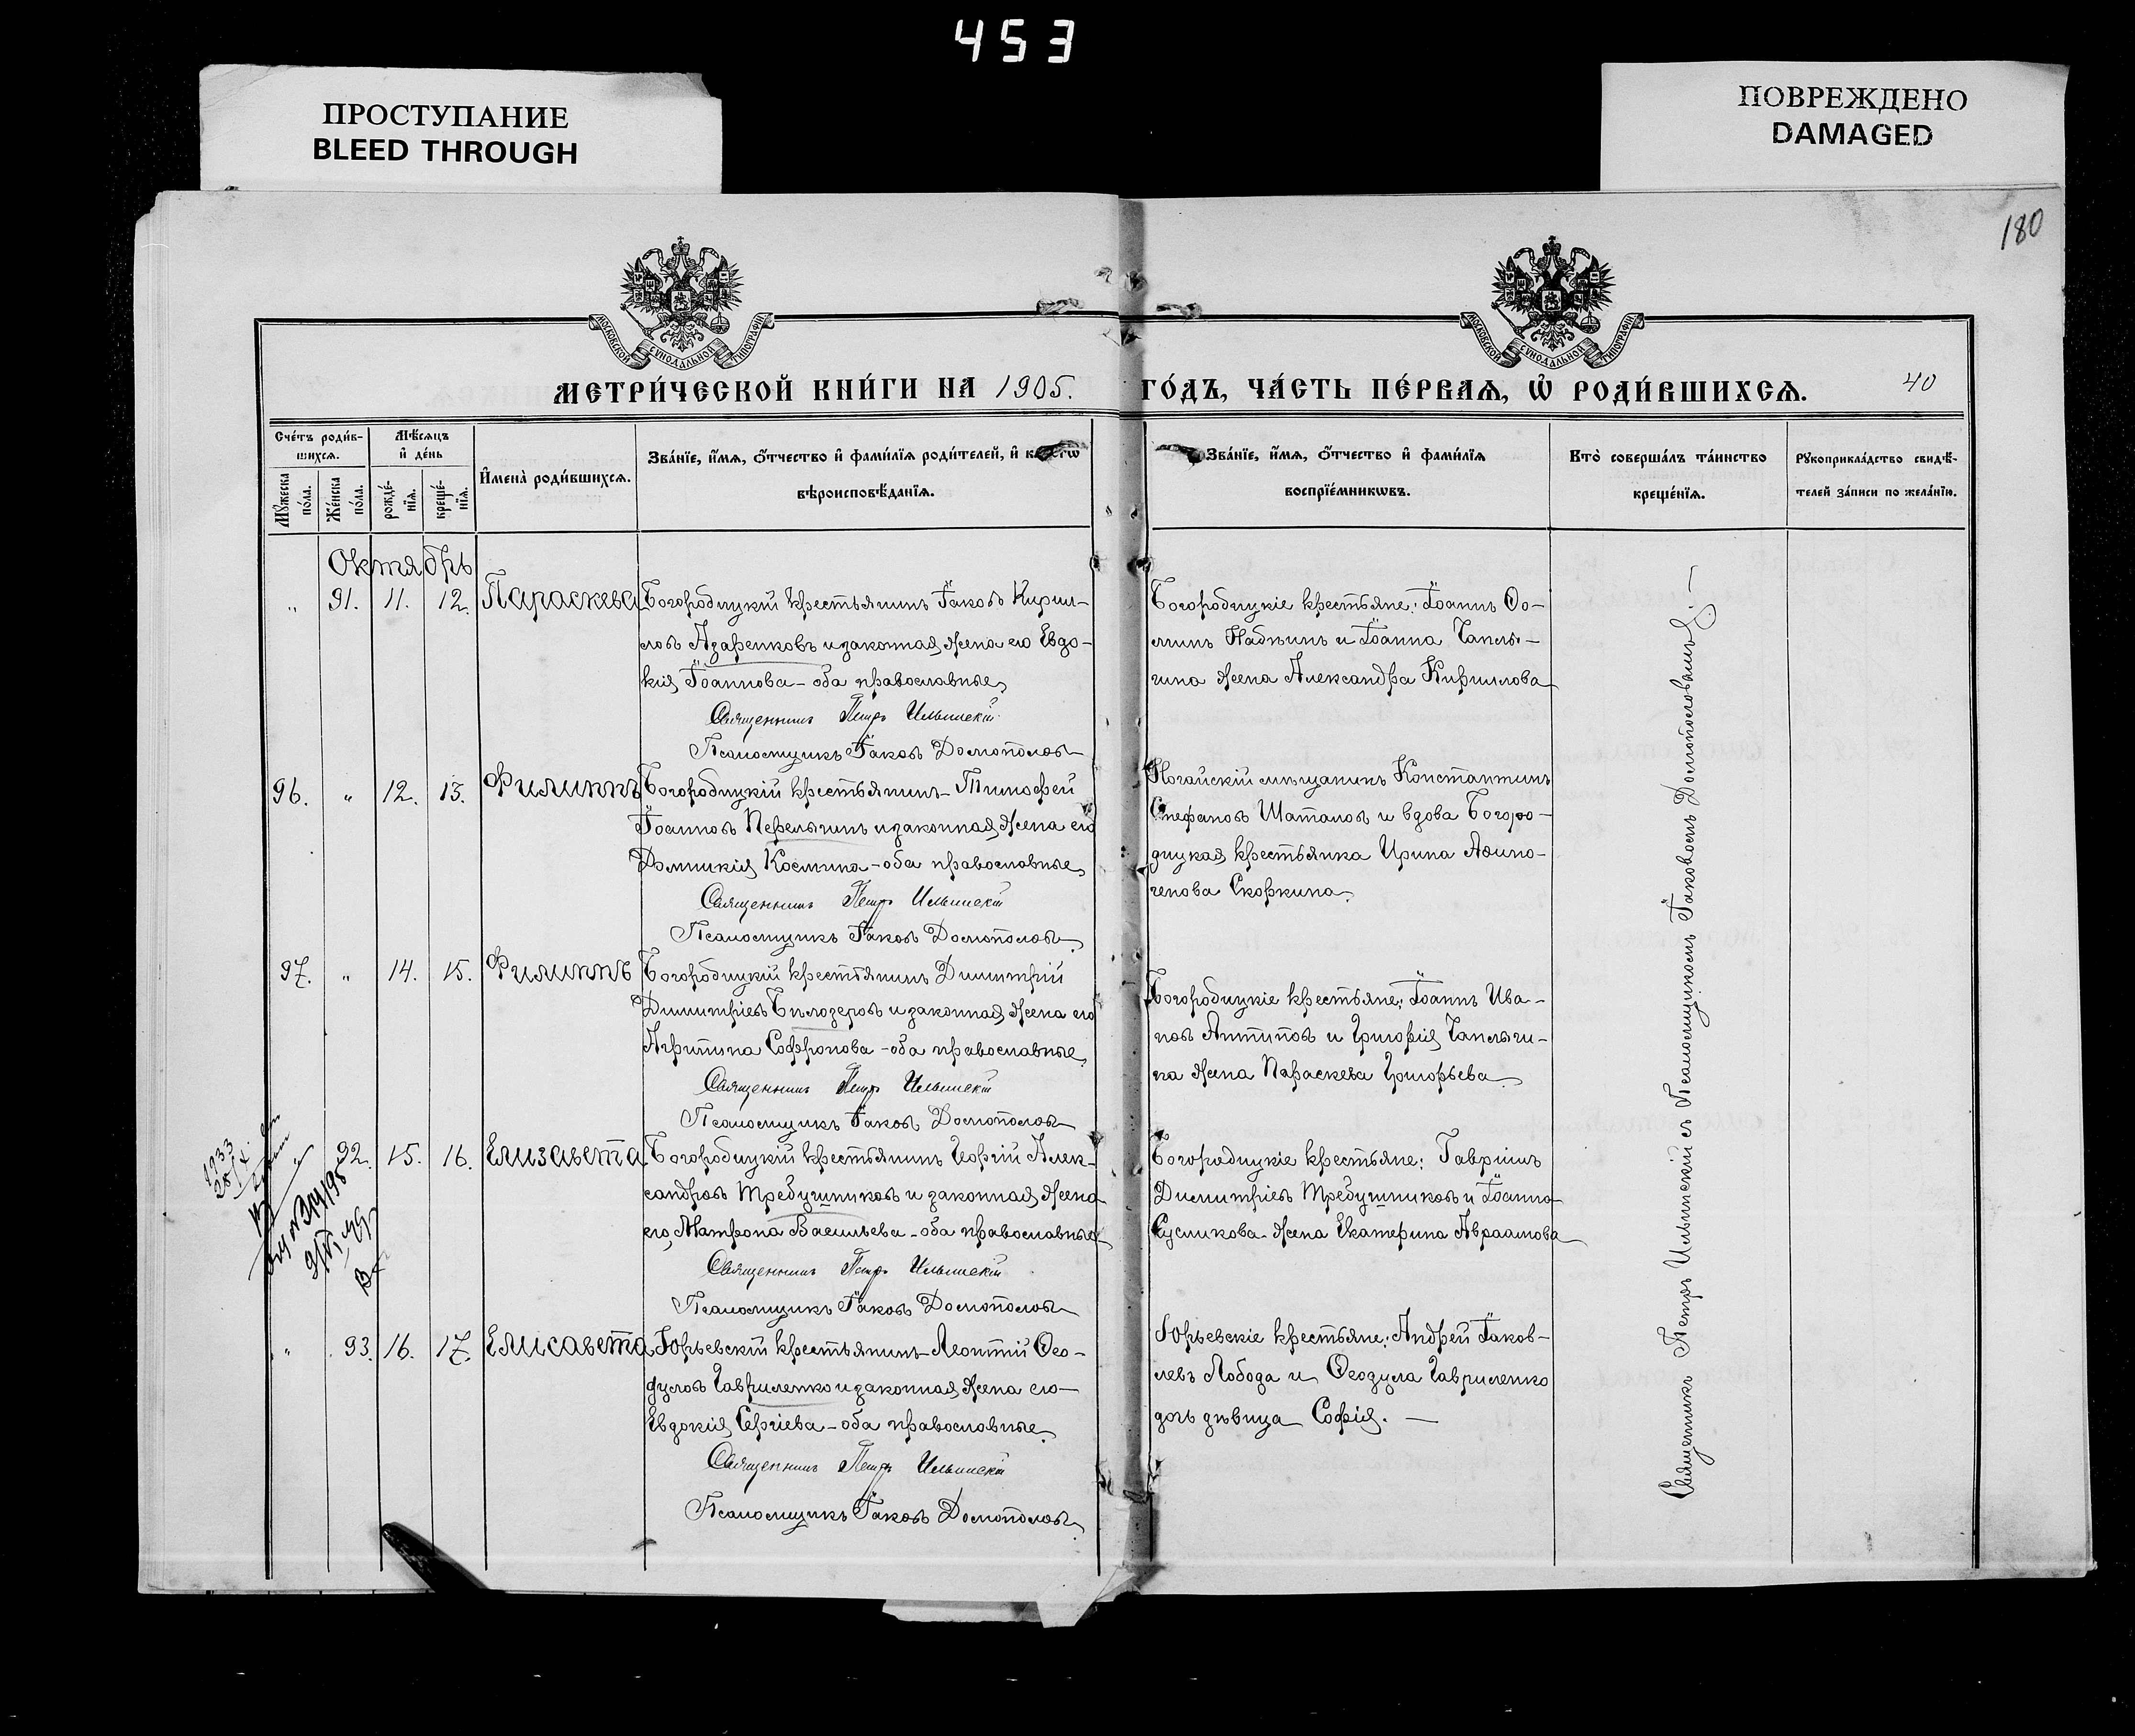 453
ПРОСТУПАНИЕ
BLEED THROUGH
ПОВРЕЖДЕНО
DAMAGED
180
МОСКОВСКОЙ СѴНОДАЛЬНОЙ ТИПОГРАФІИ
МОСКОВСКОЙ СѴНОДАЛЬНОЙ ТИПОГРАФІИ
МЕТРИ́ЧЕСКОЙ КНИ́ГИ НА 1905. ГО́ДЪ, ЧА́СТЬ ПЕ́РВАѦ, Ѡ҆ РОДИ́ВШИХСѦ.
40
Сче́тъ роди́в-
шихсѧ.
Мѣ́сѧцъ
и҆ де́нь
Мꙋ́жеска по́ла.
Же́нска по́ла.
рожде́-
нїѧ.
креще́-
нїѧ.
И҆мена̀ роди́вшихсѧ.
Зва́нїе, и҆́мѧ, ѻ҆́тчество и҆ фами́лїѧ роди́телей, и҆
вѣроисповѣ́данїѧ.
Зва́нїе, и҆́мѧ, ѻ҆́тчество и҆ фами́лїѧ
воспрїе́мникѡвъ.
Кто̀ соверша́лъ та́инство
креще́нїѧ.
Рꙋкоприкла́дство свидѣ́-
телей за́писи по жела́нїю.
Октябрь
„ 91. 11. 12. Параскева
Богородицкій крестьянинъ Іаковъ Кирил-
ловъ Азаренковъ и законная жена его Евдо-
кія Іоаннова - оба православные
Священникъ Петръ Ильинскій
Псаломщикъ Іаковъ Домополов
Богородицкіе крестьяне: Іоаннъ Ѳо-
минъ Набкинъ и Іоанна Чаплы-
гина жена Александра Кириллова
96. „ 12. 13. Филиппъ
Богородицкій крестьянинъ Тимофей
Іоанновъ Перелыгинъ и законная жена его
Домникія Космина - оба православные
Священникъ Петръ Ильинскій
Псаломщикъ Іаковъ Домополов
Ногайскій мѣщанинъ Константинъ
Стефановъ Шаталовъ и вдова Богоро-
дицкая крестьянка Ирина Аѳино-
генова Скоркина
97. „ 14. 15. Филиппъ
Богородицкій крестьянинъ Димитрій
Димитріевъ Бѣлозеровъ и законная жена его
Агриппина Софронова - оба православные
Священникъ Петръ Ильинскій
Псаломщикъ Іаковъ Домополов
Богородицкіе крестьяне: Іоаннъ Ива-
новъ Антиповъ и Григорія Чаплыги-
на жена Параскева Григорьева
92. 15. 16. Елизавета
1933
Богородицкій крестьянинъ Георгій Алек-
сандровъ Требушниковъ и законная жена
его Матрона Васильева - оба православные
Священникъ Петръ Ильинскій
Псаломщикъ Іаковъ Домополов
Богородицкіе крестьяне: Гавріилъ
Димитріевъ Требушниковъ и Іоанна
Сусликова жена Екатерина Авраамова
„ 93. 16. 17. Елисавета
Юрьевскій крестьянинъ Леонтій Ѳео-
дуловъ Гавриленко и законная жена его
Евдокія Сергіева - оба православные
Священникъ Петръ Ильинскій
Псаломщикъ Іаковъ Домополов
Юрьевскіе крестьяне: Андрей Іаков-
левъ Лобода и Ѳеодула Гавриленко
дочь дѣвица Софія. —
Священникъ Петръ Ильинскій съ Псаломщикомъ Іаковомъ